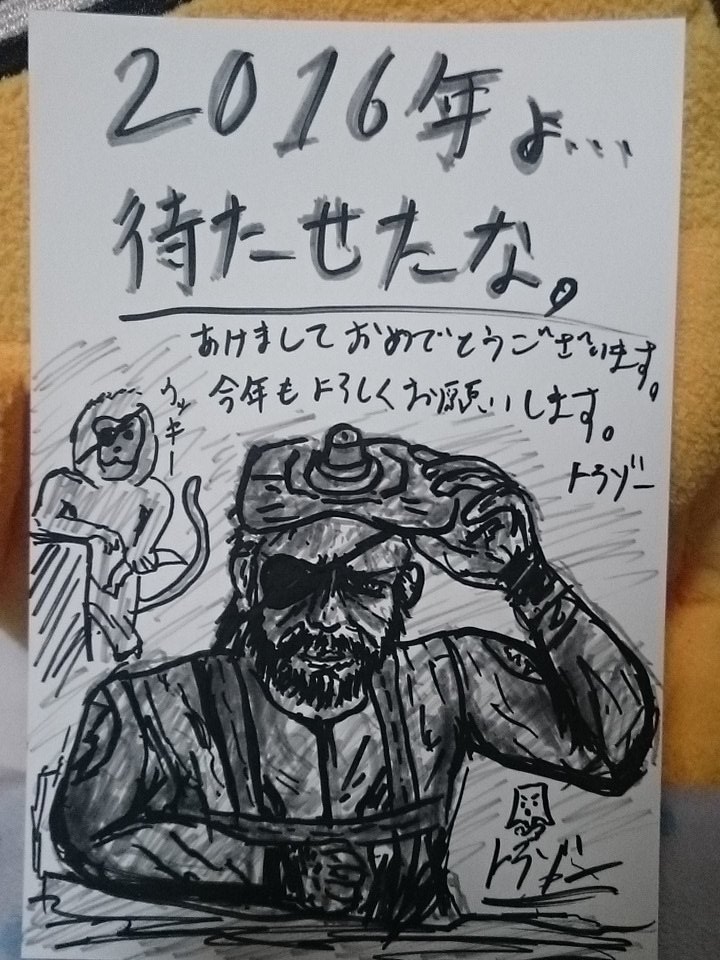 2016年よ...
待たせたな。
あけましておめでとうございます。
今年もよろしくお願いします。
トラゾー
ウッキー
トラゾー